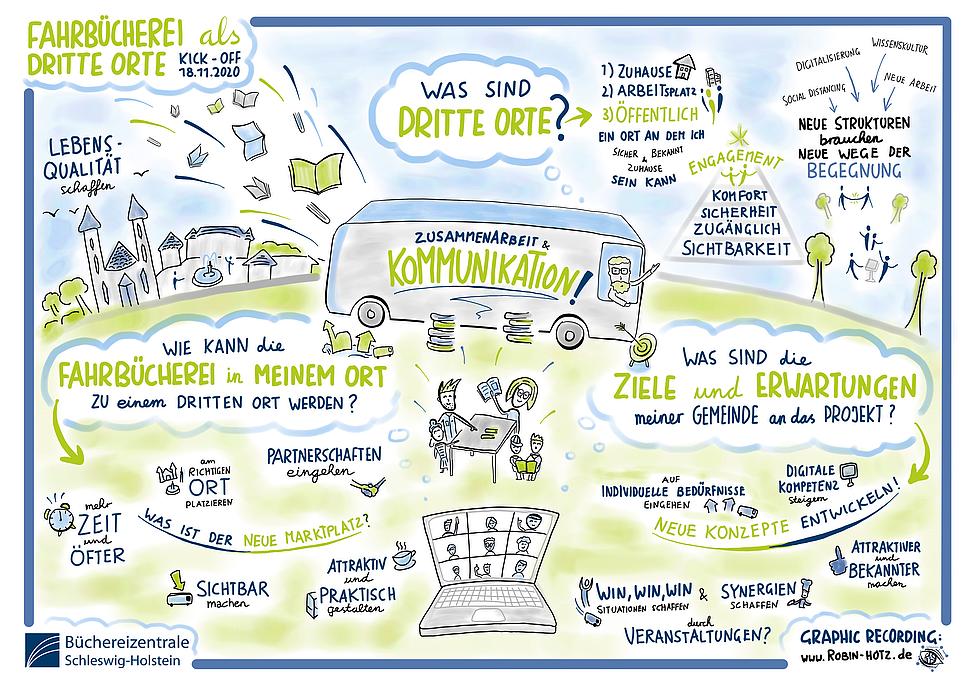 FAHRBÜCHEREI als
DRITTE ORTE
KICK-OFF
18.11.2020
LEBENS-
QUALITÄT
schaffen
WAS SIND
DRITTE ORTE?
1) ZUHAUSE
2) ARBEITSPLATZ
3) ÖFFENTLICH
EIN ORT AN DEM ICH
SICHER & BEKANNT
ZUHAUSE
SEIN KANN
ENGAGEMENT
KOMFORT
SICHERHEIT
ZUGÄNGLICH
SICHTBARKEIT
DIGITALISIERUNG
WISSENSKULTUR
SOCIAL DISTANCING
NEUE ARBEIT
NEUE STRUKTUREN
brauchen
NEUE WEGE DER
BEGEGNUNG
ZUSAMMENARBEIT &
KOMMUNIKATION!
WIE KANN die
FAHRBÜCHEREI in MEINEM ORT
ZU einem DRITTEN ORT WERDEN?
mehr
ZEIT
und
ÖFTER
am
RICHTIGEN
ORT
PLATZIEREN
PARTNERSCHAFTEN
eingehen
WAS IST DER NEUE MARKTPLATZ?
SICHTBAR
machen
ATTRAKTIV
und
PRAKTISCH
gestalten
WAS SIND die
ZIELE und ERWARTUNGEN
meiner GEMEINDE an das PROJEKT?
AUF
INDIVIDUELLE BEDÜRFNISSE
EINGEHEN
DIGITALE
KOMPETENZ
steigern
NEUE KONZEPTE ENTWICKELN!
ATTRAKTIVER
und
BEKANNTER
machen
WIN, WIN, WIN &
SITUATIONEN SCHAFFEN
SYNERGIEN
SCHAFFEN
durch
VERANSTALTUNGEN?
Büchereizentrale
Schleswig-Holstein
GRAPHIC RECORDING:
www.ROBIN-HOTZ.de